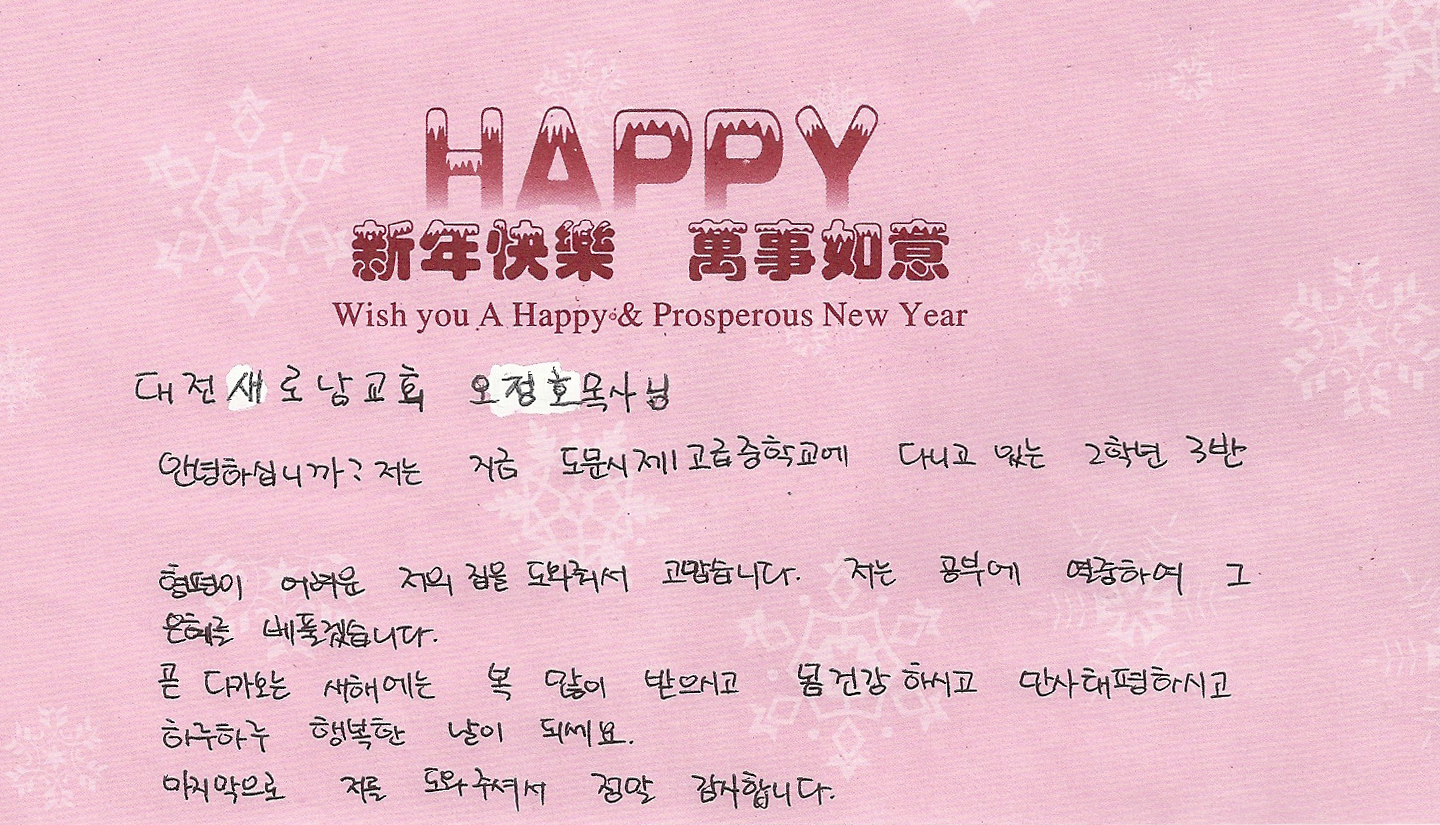 HAPPY
新年快樂 萬事如意
Wish you A Happy & Prosperous New Year
대전새로남교회 오정호목사님
안녕하십니까? 저는 지금 도문시제1고급중학교에 다니고 있는 2학년 3반
형평이 어려운 저의 집을 도와줘서 고맙습니다. 저는 공부에 열중하여 그
은혜를 베풀겠습니다.
곧 다가오는 새해에는 복 많이 받으시고 몸 건강 하시고 만사태평하시고
하루하루 행복한 날이 되세요.
마지막으로 저를 도와주셔서 정말 감사합니다.